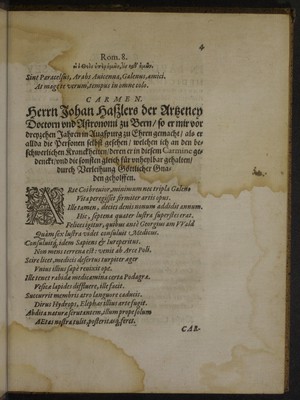 4
Rom. 8.
Sint Paracelsus, Arabs Auicenna, Galenus, amici.
At magis te verum, tempus in omne colo.
CARMEN.
Herrn Johan Haßlers der Artzeney
Doctorn vnd Astronomi zu Bern / so er mir vor
dreyzehen Jahren in Augspurg zu Ehren gemacht / als er
allda die Personen selbst gesehen / welchen ich an den be-
schwerlichen Kranckheiten / deren er in disem Carmine ge-
denckt / vnd die sonsten gleich für vnheylbar gehalten /
durch Verleihung Göttlicher Gna-
den geholffen.
Vita peregisset firmiter artis opus.
Ille tamen, decies denis nonum addidit annum.
Hic, septena quater lustra superstes erat.
Felices igitur, quibus ante Georgius am VVald
Quàm sex lustra videt consuluit Medicus.
Consuluitq, idem Sapiens & Iureperitus.
Non mens terrena est: venit ab Arce Poli.
Scire licet, medicis desertus turpiter æger
Vnius illius sæpè reuixit ope.
Ille tenet rabida medicamina certa Podagra.
Vesicæ lapides diffluere, ille facit.
Succurrit membris atro languore caducis.
Dirus Hydrops, Elephas illius arte fugit.
Abdita naturæ scrutantem, illum propè solum
Aetas nostra tulit, posteritasq, feret.
CAR-